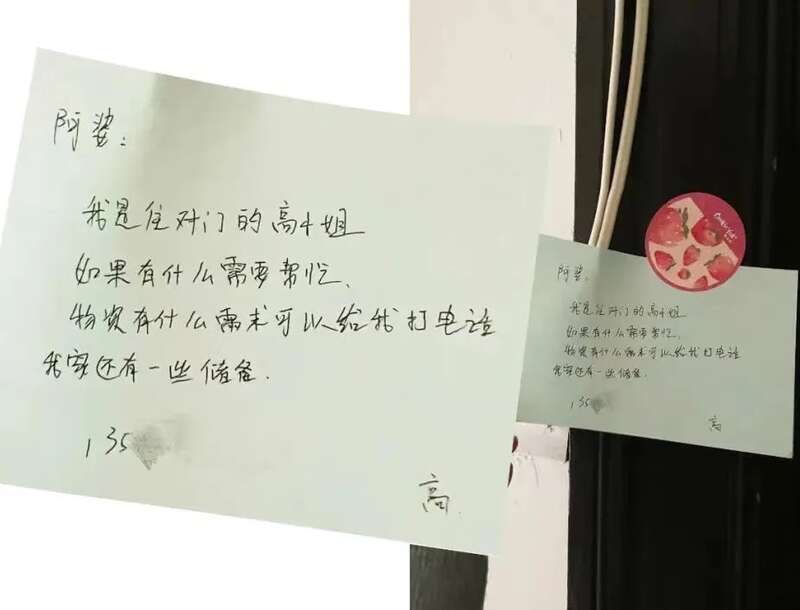 阿婆：
我是住对门的高小姐
如果有什么需要帮忙、
物资有什么需求可以给我打电话
我家还有一些储备.
135
高.
阿婆：
我是住对门的高小姐
如果有什么需要帮忙、
物资有什么需求可以给我打电话
我家还有一些储备.
135
高